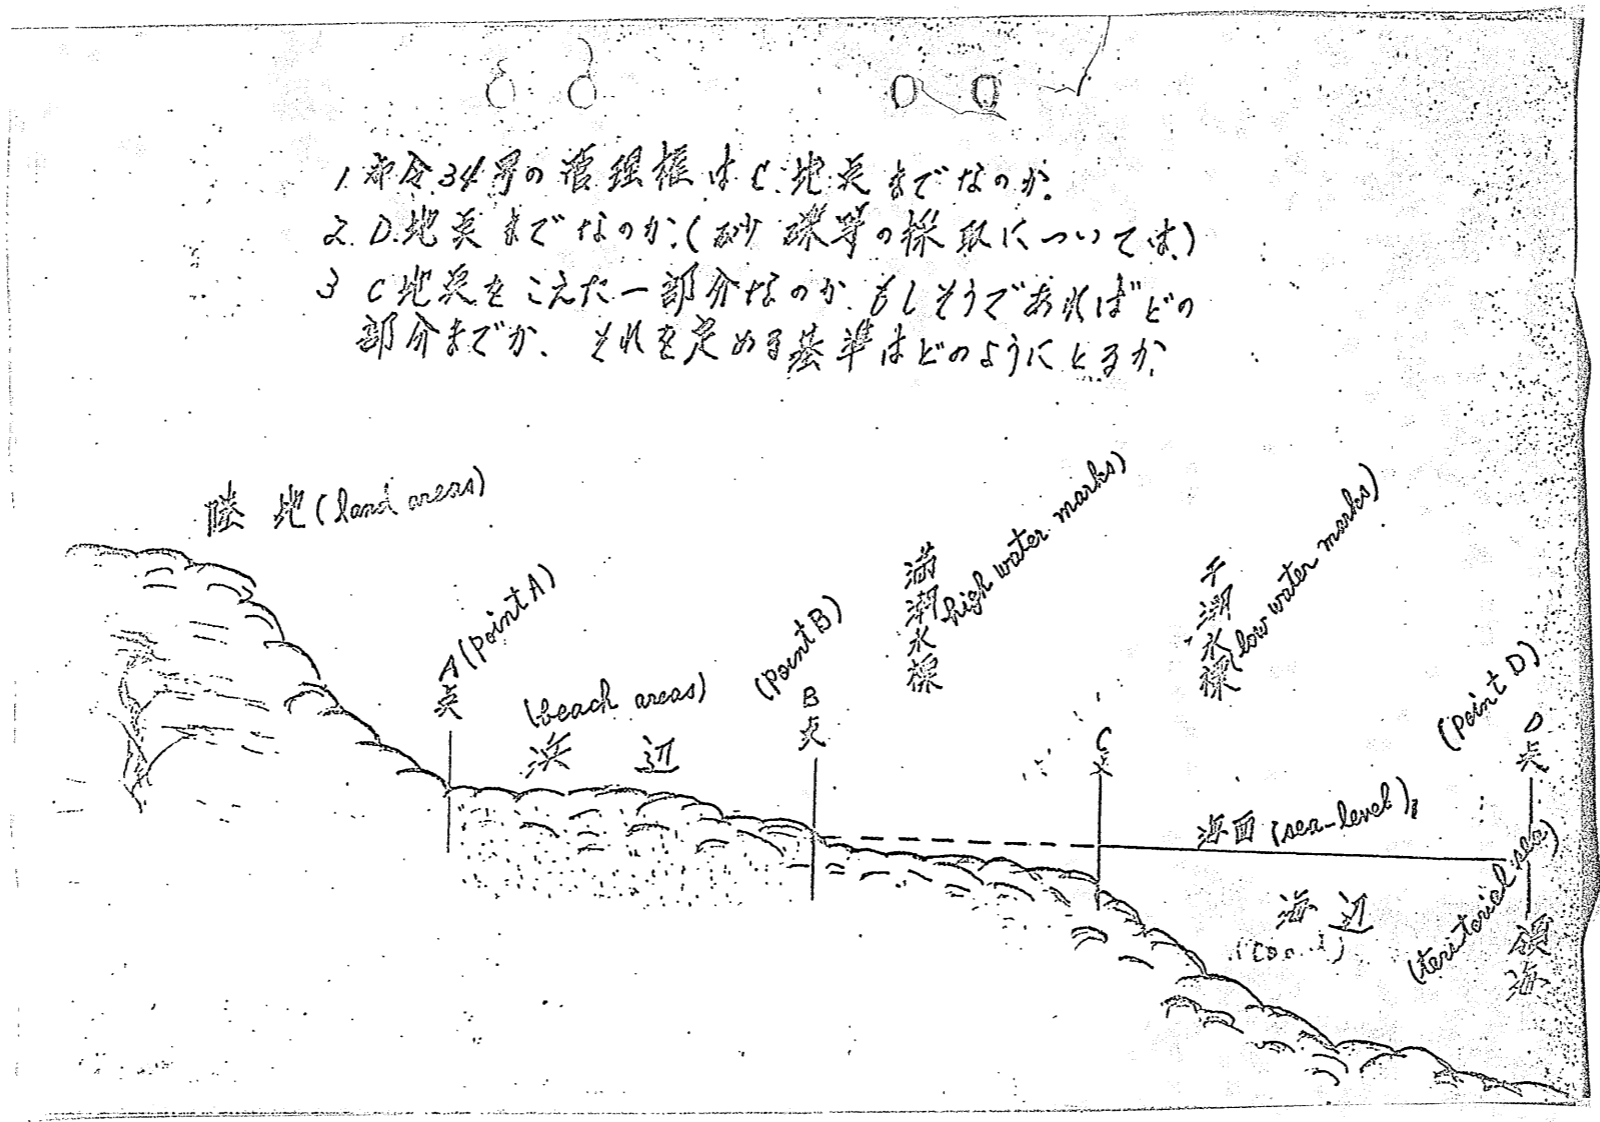 1. 布令34号の管理権はC.地点までなのか.
2. D.地点までなのか.(砂礫等の採取については)
3 C地点をこえた一部分なのか.もしそうであればどの
部分までか、それを定める基準はどのようにとるか.
陸地(land areas)
A点(point A)
(beach areas)
浜辺
(point B)
B点
満潮水標 high water marks)
C点
干潮水標(low water marks)
(point D)
D点
海面(sea-level)
海辺
(teritorial sea)
領海